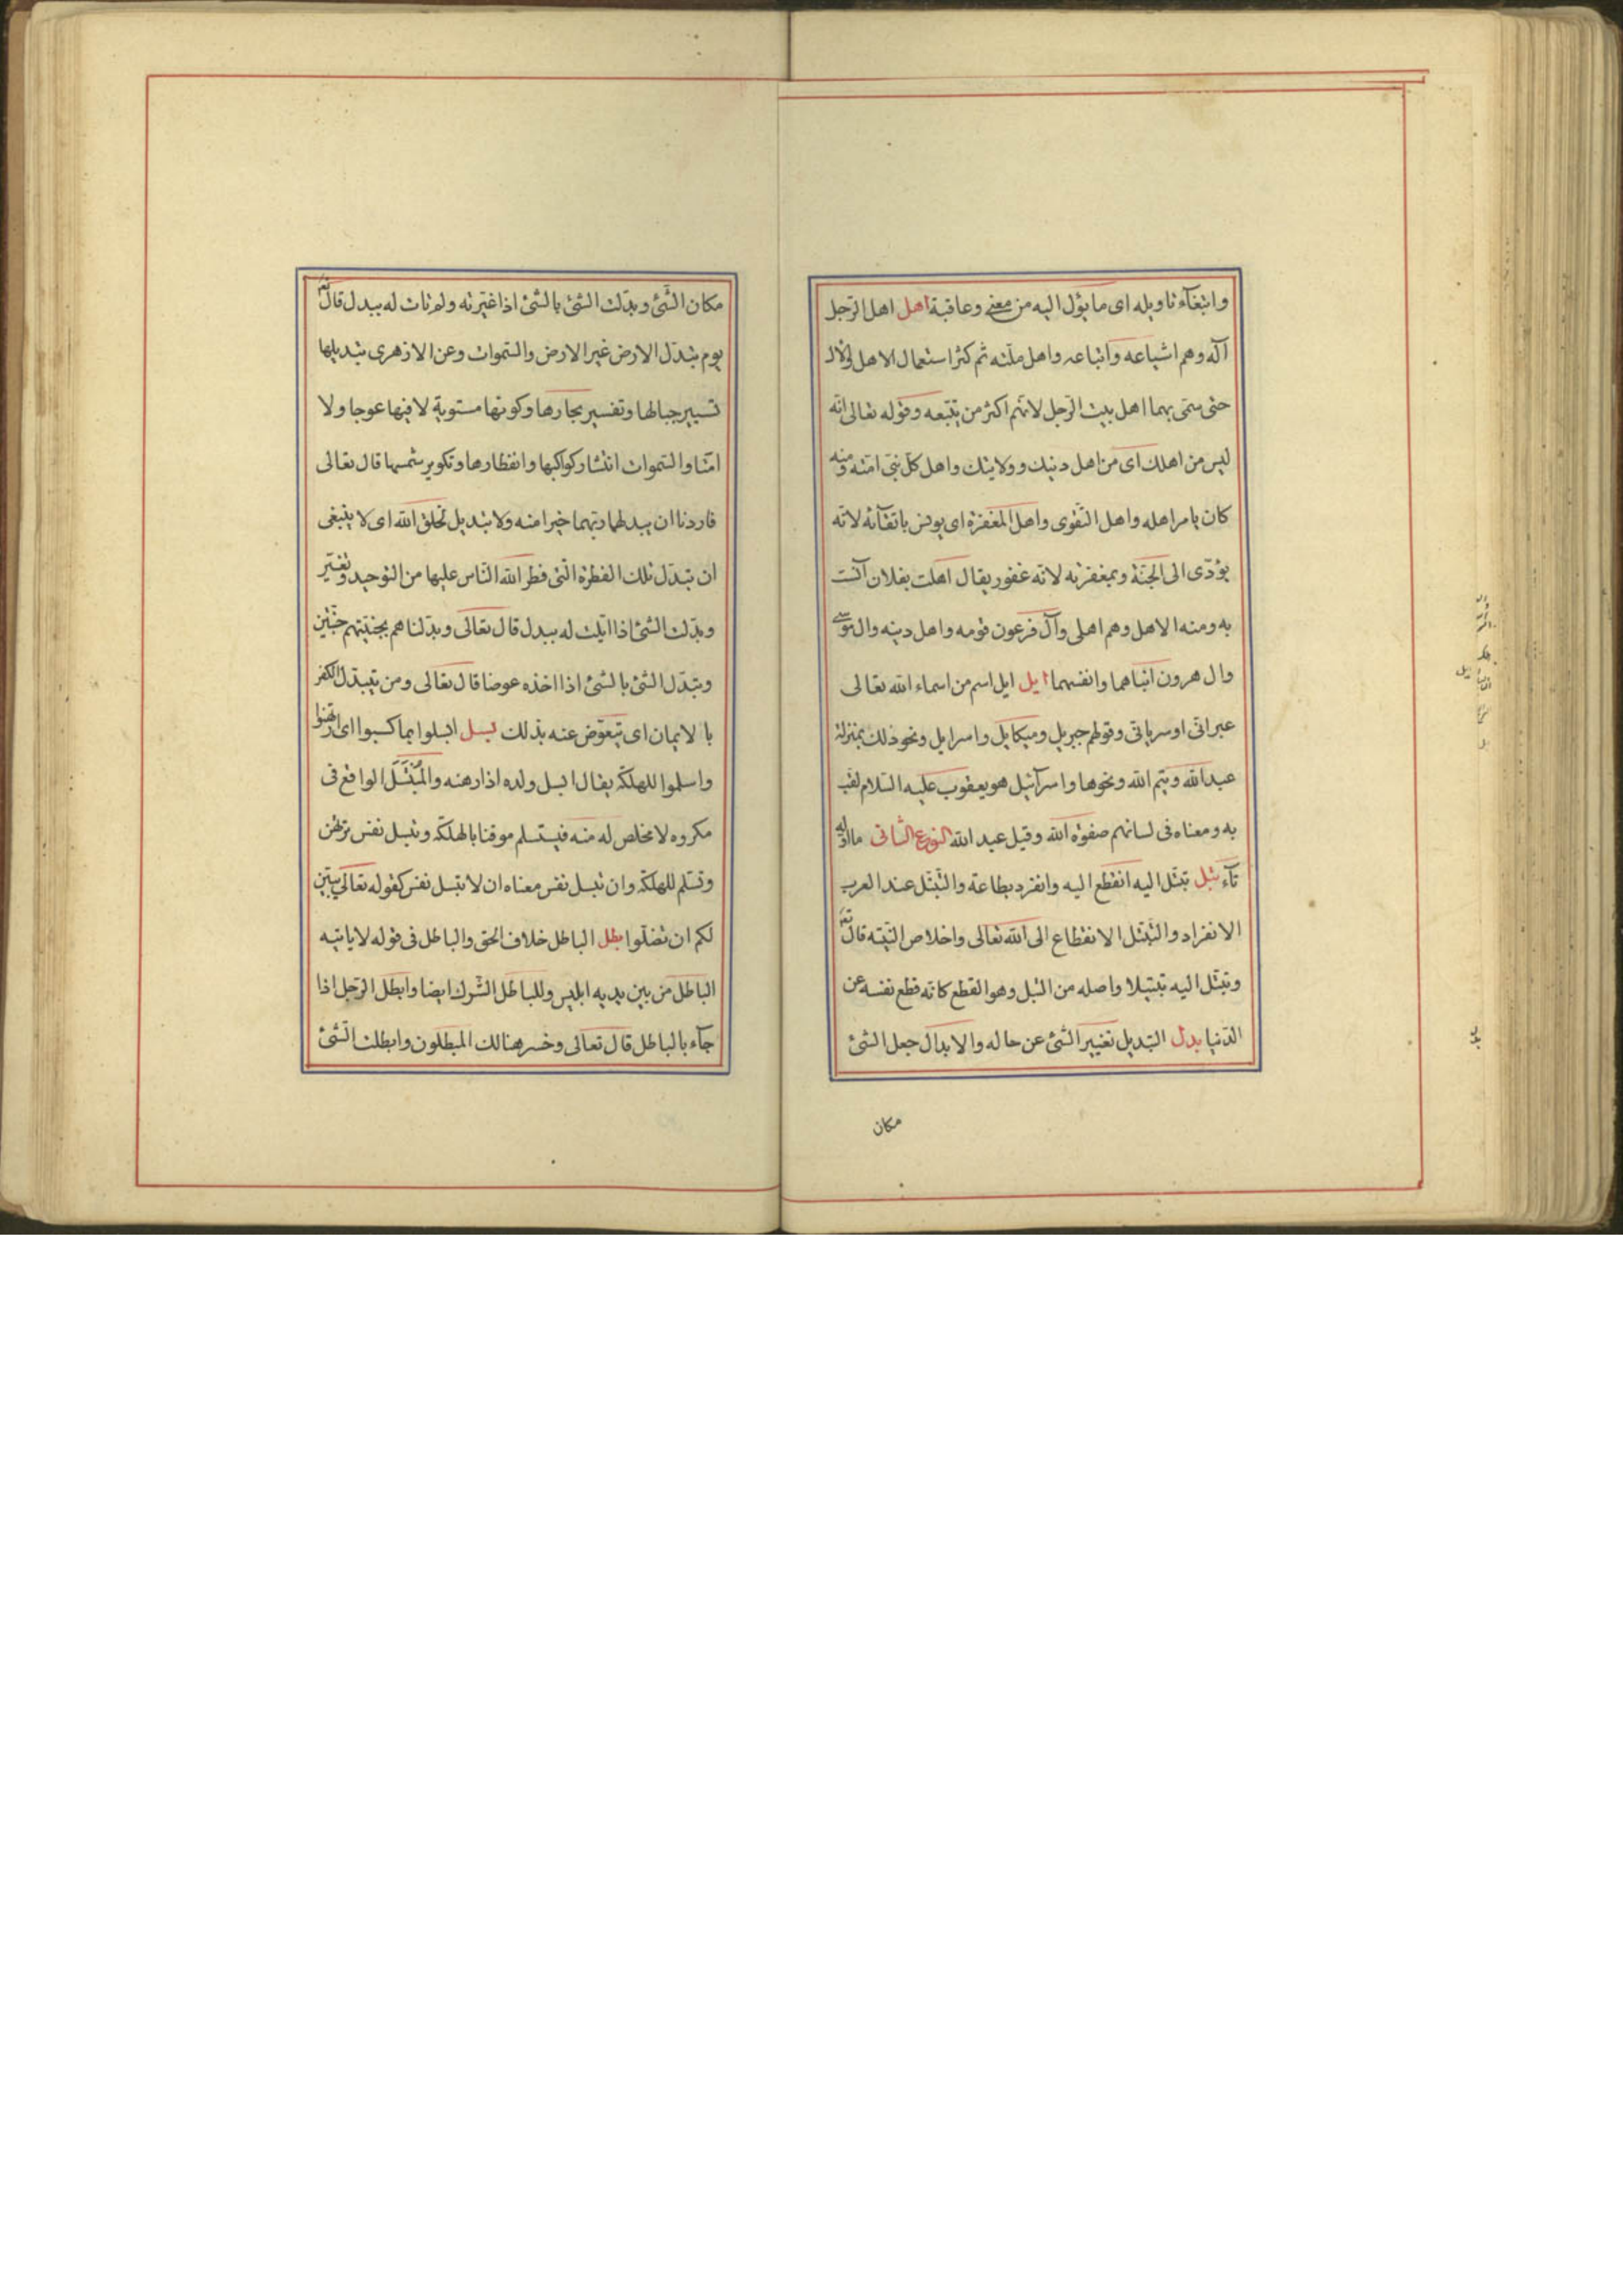 وابتغآء تاويله اى ما يؤل اليه من معنى وعاقبة اهل اهل الرّجل
آله وهم اشياعه واتباعه واهل ملّته ثم كثر استعمال الاهل والال
حتى سمّى بهما اهل بيت الرّجل لانّهم اكثر من يتبعه وقوله تعالى انّه
ليس من اهلك اى من اهل دينك وولايتك واهل كلّ نبىّ امّته ومنه
كان يامر اهله واهل التّقوى واهل المغفرة اى يونس باتقآئه لانّه
يؤدّى الى الجنّة وبمغفرته لانّه غفور يقال اهلت بفلان آنست
به ومنه الاهل وهم اهلى وآل فرعون قومه واهل دينه وال موسى
وال هرون انباهما وانفسهما ايل ايل اسم من اسماء الله تعالى
عبرانىّ او سريانىّ وقولهم جبريل وميكايل واسرايل ونحو ذلك بمنزلة
عبد الله وتيم الله ونحوها واسرآئيل هو يعقوب عليه السّلام لقّب
به ومعناه فى لسانهم صفوة الله وقيل عبد الله النّوع الثّانى ما اوّله
بآء بتل تبتّل اليه انقطع اليه وانفرد بطاعة والتّبتّل عند العرب
الانفراد والتّبتّل الانقطاع الى الله تعالى واخلاص النّيّة قال تعم
وتبتّل اليه تبتيلا واصله من البتل وهو القطع كانّه قطع نفسه عن
الدّنيا بدل التبديل تغيير الشّئ عن حاله والابدال جعل الشئ
مكان
مكان الشّئ وبدّلت الشئ بالشئ اذا غيّرته ولم تات له ببدل قال تعم
يوم تبدّل الارض غير الارض والسّموات وعن الازهرى تبديلها
تسيير جبالها وتفسير بحارها وكونها مستوية لا فيها عوجا ولا
امتا والسّموات انتشار كواكبها وانفطارها وتكوير شمسها قال تعالى
فاردنا ان يبدلهما ربّهما خيرا منه ولا تبديل لخلق الله اى لا ينبغى
ان تبدّل تلك الفطرة الّتى فطر الله النّاس عليها من التوحيد وتغيّر
وبدّلت الشئ اذا اتيت له ببدل قال تعالى وبدّلناهم بجنّتيهم جنّتين
وتبدّل الشئ بالشئ اذا اخذه عوضا قال تعالى ومن يتبدّل الكفر
بالايمان اى يتعوّض عنه بذلك بسل ابسلوا بما كسبوا اى ارتهنوا
واسلموا للهلكة يقال ابسل ولده اذا رهنه والمبتسل الواقع فى
مكروه لا مخلص له منه فيستسلم موقنا بالهلكة وتبسل نفس ترتهن
وتسلم للهلكة وان تبسل نفس معناه ان لا تبسل نفس كقوله تعالى يبيّن
لكم ان تضلّوا بطل الباطل خلاف الحق والباطل فى قوله لا ياتيه
الباطل من بين يديه ابليس وللباطل الشّرك ايضا وابطل الرّجل اذا
جآء بالباطل قال تعالى وخسر هنالك المبطلون وابطلت الشّئ